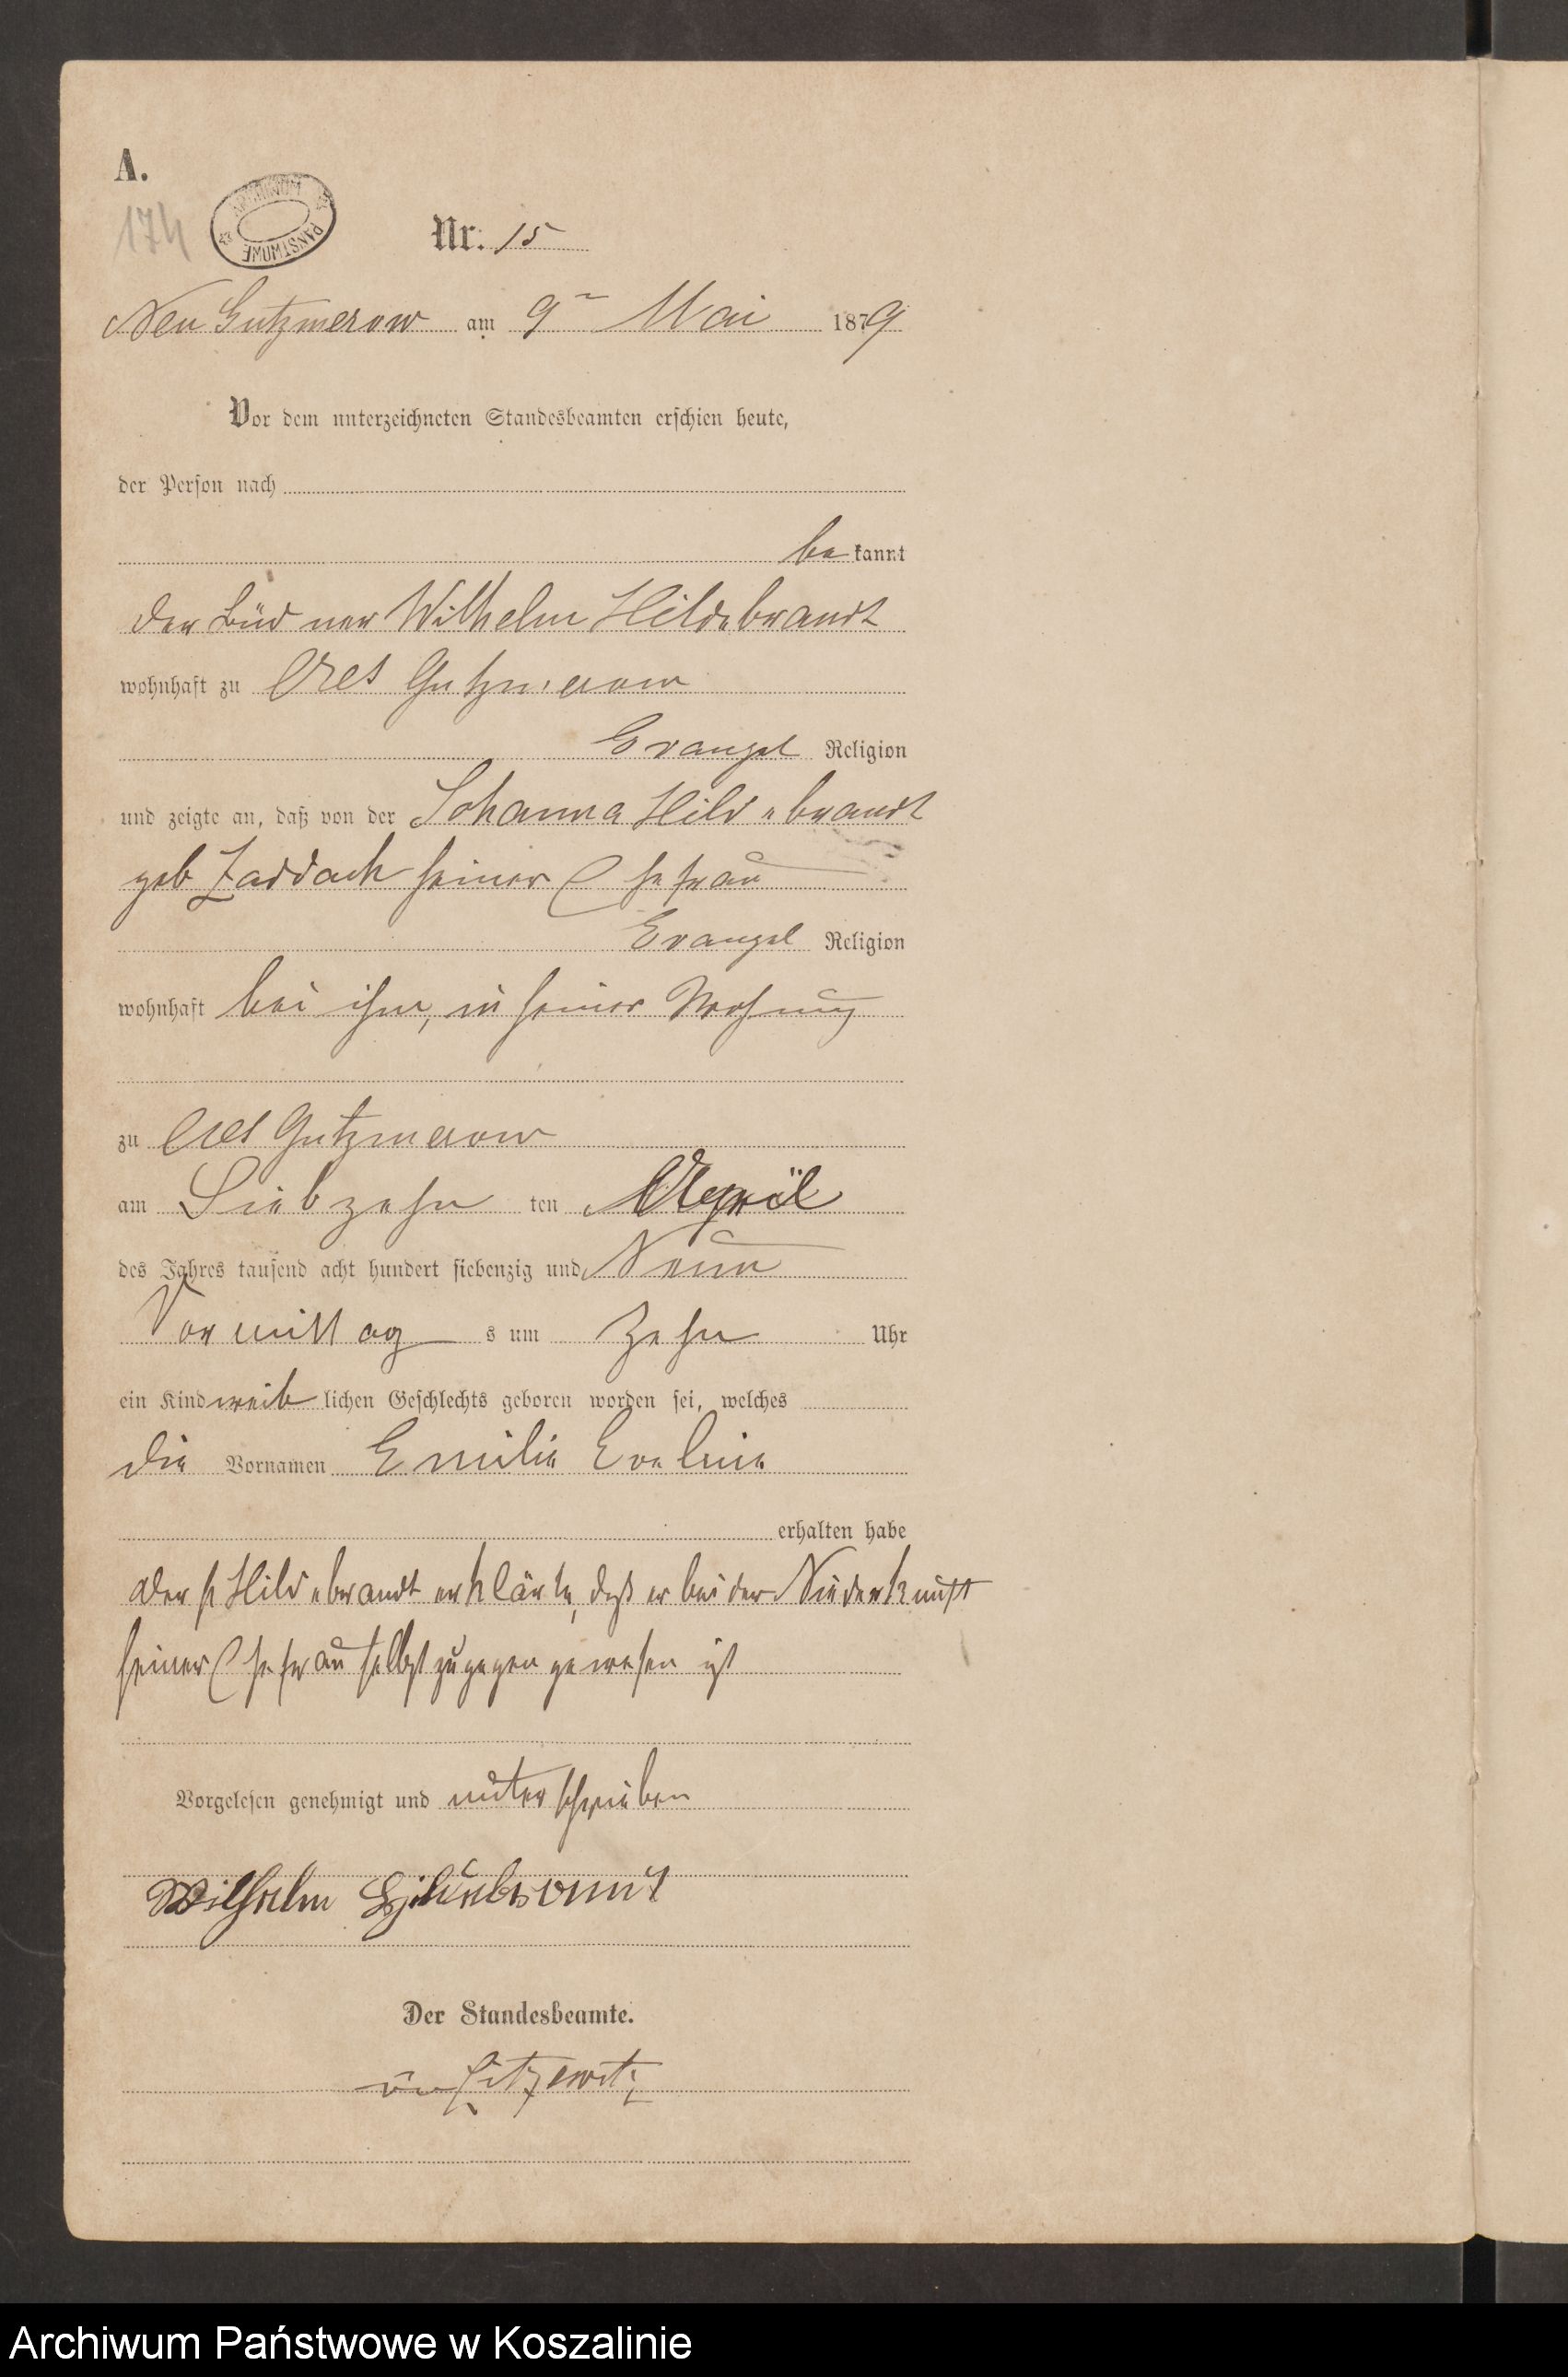 A.
174
ARCHIWUM PAŃSTWOWE
Nr. 15
Neu Gutzmerow am 9ten Mai 1879
Vor dem unterzeichneten Standesbeamten erschien heute,
der Person nach
be kannt
der Büdner Wilhelm Hildebrandt
wohnhaft zu Alt Gutzmerow
Evangel Religion
und zeigte an, daß von der Johanna Hildebrandt
geb Zaddach seiner Ehefrau
Evangel Religion
wohnhaft bei ihm, in seiner Wohnung
zu Alt Gutzmerow
am Siebzehn ten April
des Jahres tausend acht hundert siebenzig und Neun
Vormittag s um Zehn Uhr
ein Kind weib lichen Geschlechts geboren worden sei, welches
die Vornamen Emilie Eveline
erhalten habe
der p Hildebrandt erklärte, daß er bei der Niederkunft
seiner Ehefrau selbst zugegen gewesen ist
Vorgelesen genehmigt und unterschrieben
Wilhelm Hildebrandt
Der Standesbeamte.
Archiwum Państwowe w Koszalinie